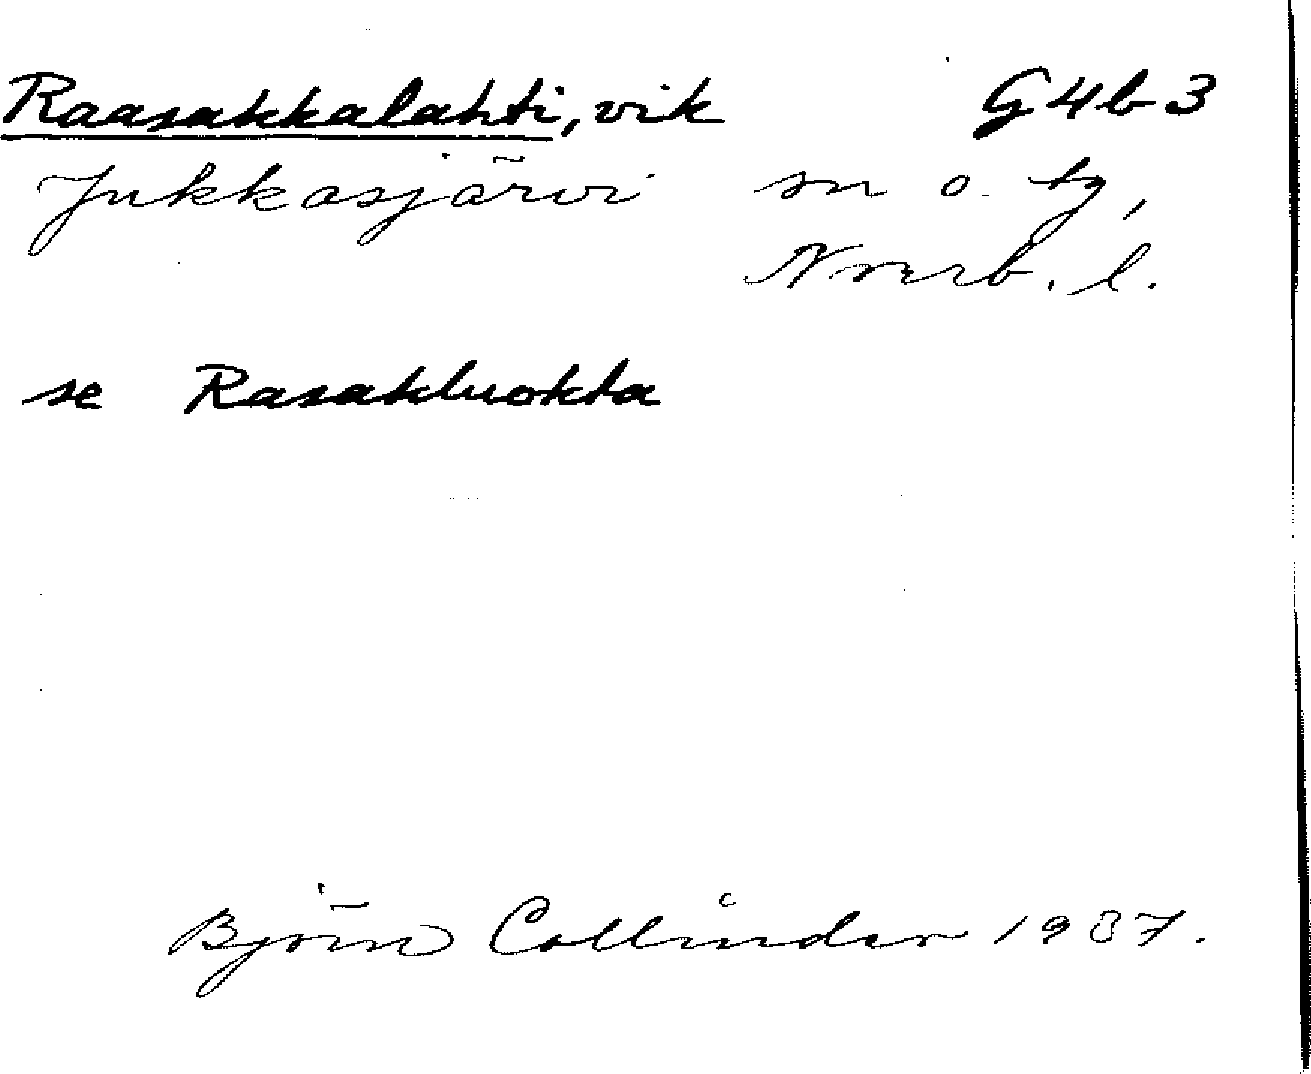 Raasakkalahti, vik G4b3
Jukkasjärvi sn o. tg,
Norrb. l.
se Rasakluokta
Björn Collinder 1937.